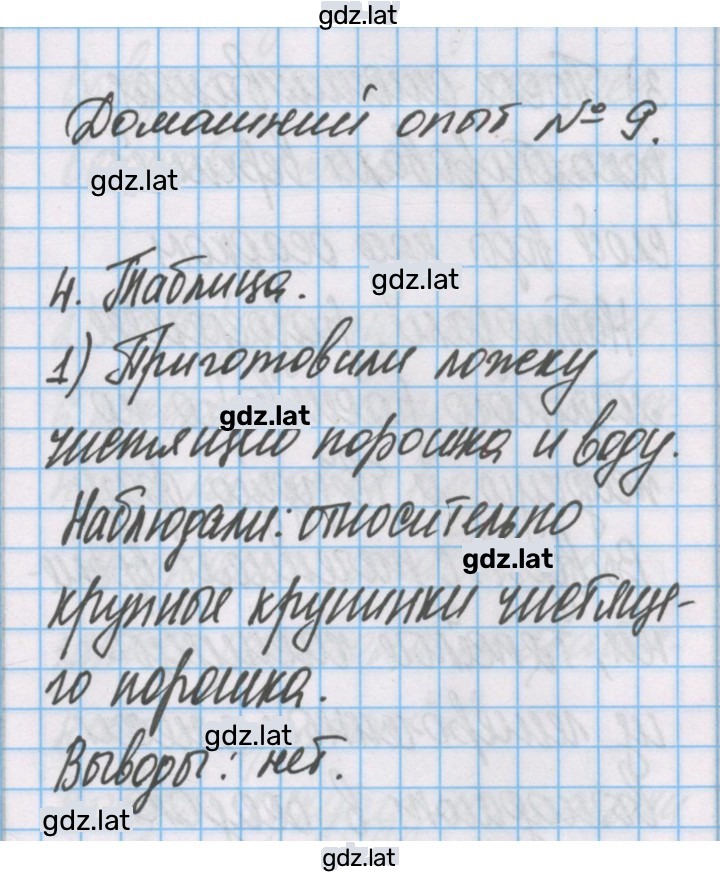 gdz.lat
Домашний опыт № 9.
gdz.lat
4. Таблица.
gdz.lat
1) Приготовили ложку
gdz.lat
чистящию порошка и воду.
Наблюдали: относительно
gdz.lat
крупные крупинки чистяще-
го порошка.
gdz.lat
Выводы: нет.
gdz.lat
gdz.lat